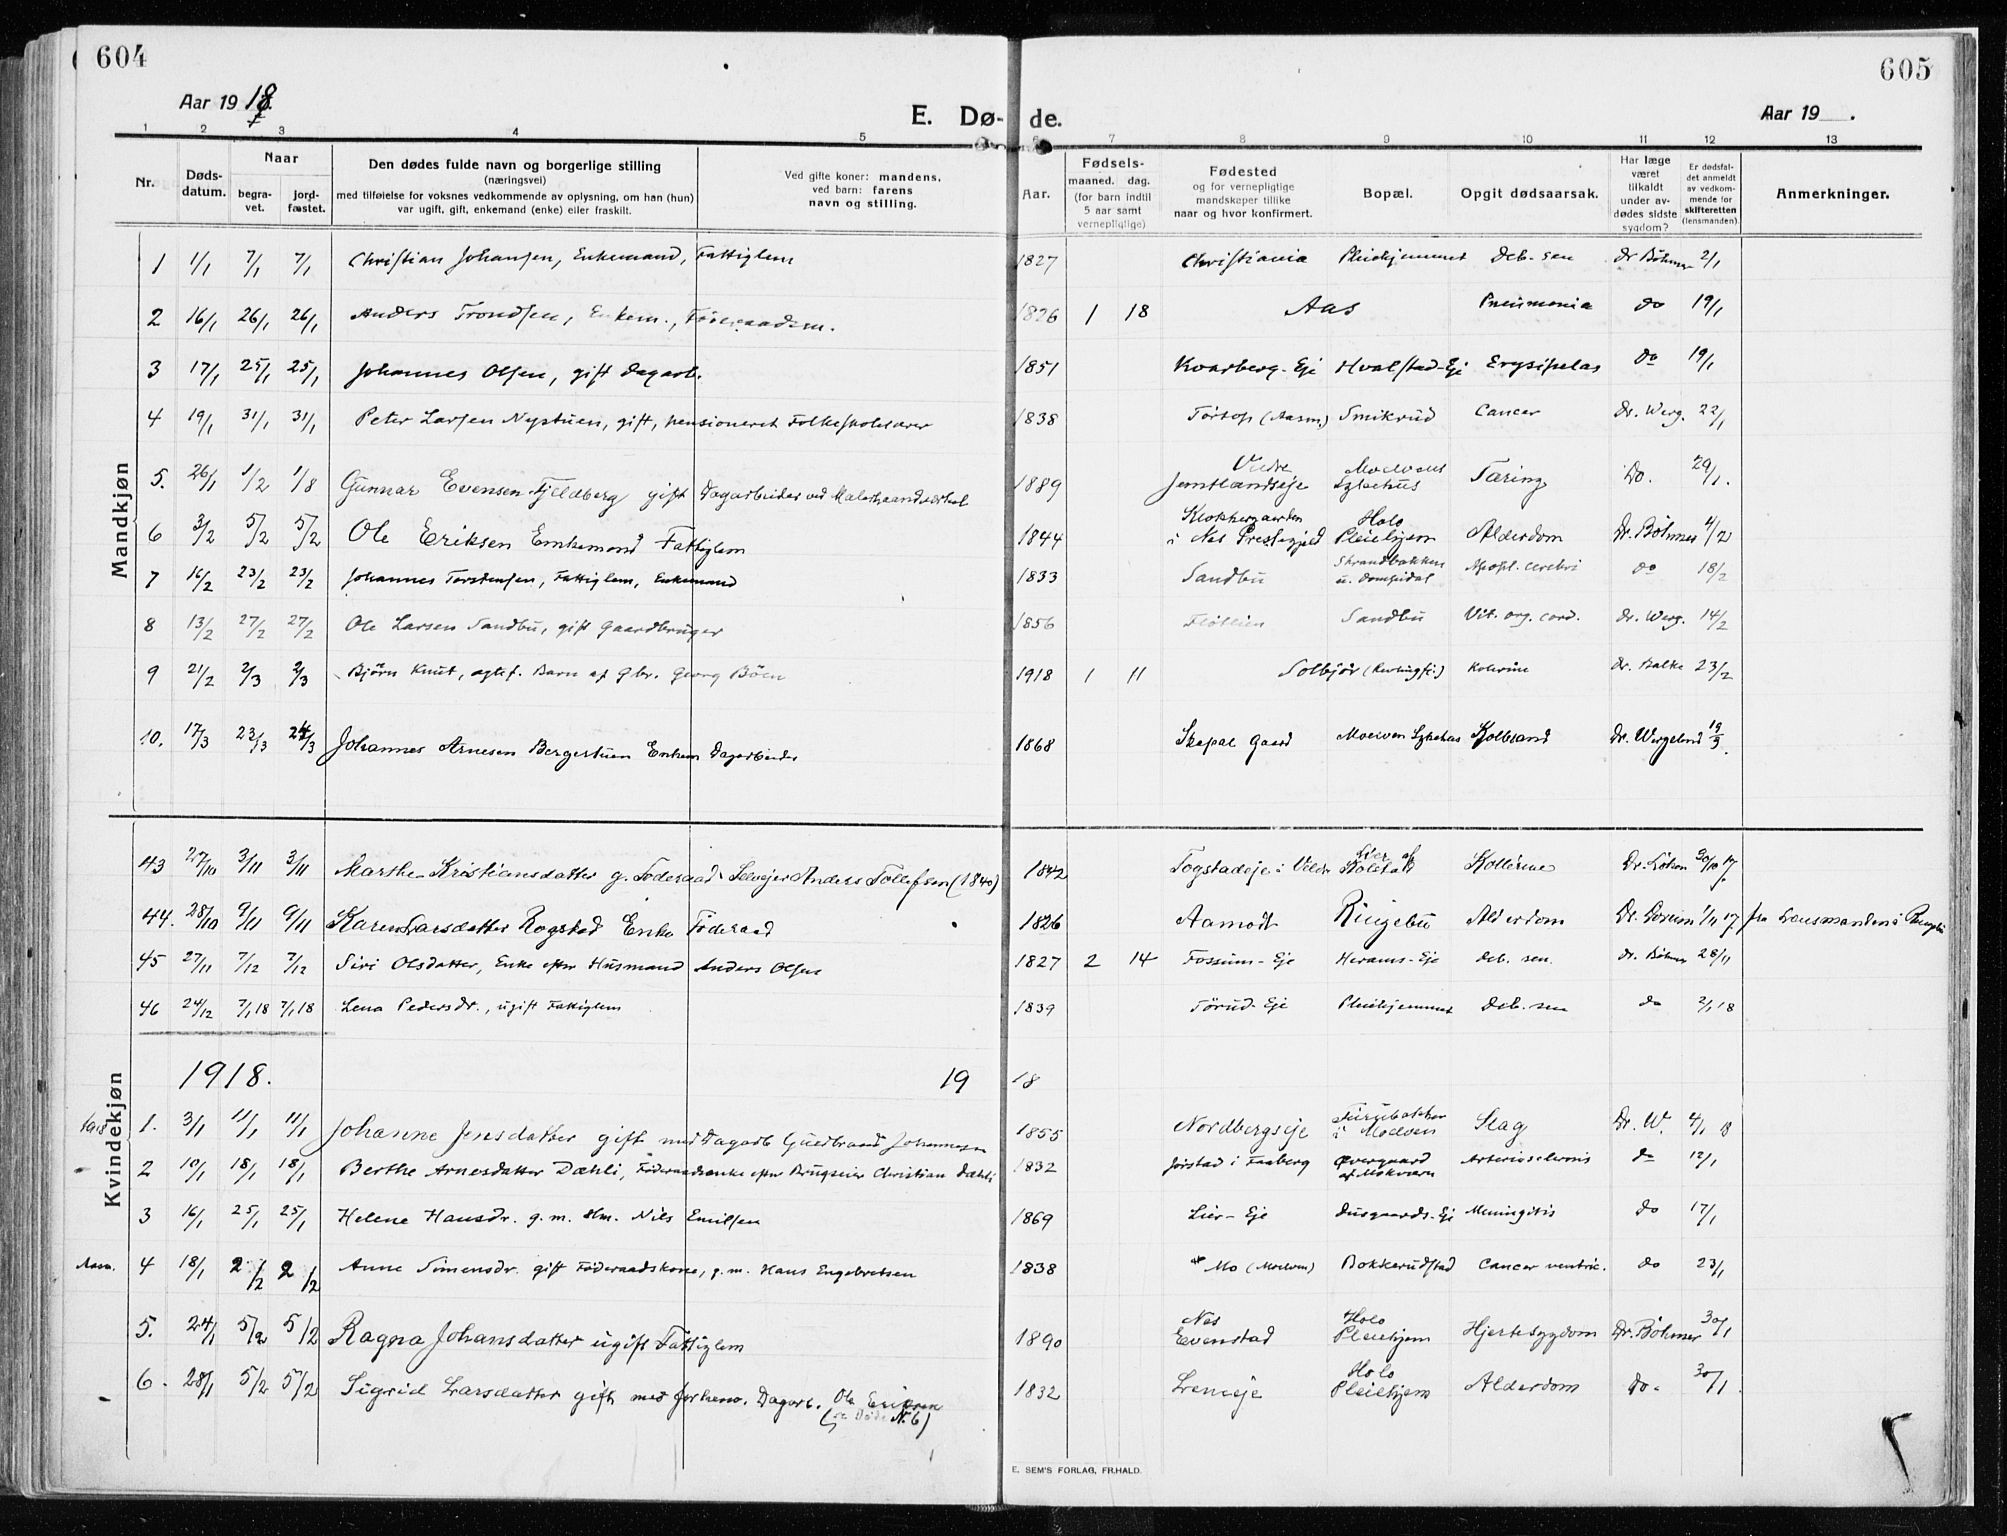 604
605
Aar 1918.
E. Dø-de.
Aar 19 .
1 2 3 4 5 6 7 8 9 10 11 12 13
Nr.
Døds-datum.
Naar
begra-vet.
jord-fæstet.
Den dødes fulde navn og borgerlige stilling
(næringsvei)
med tilføielse for voksnes vedkommende av oplysning, om han (hun)
var ugift, gift, enkemand (enke) eller fraskilt.
Ved gifte koner: mandens.
ved barn: farens
navn og stilling.
Aar.
Fødsels-
maaned. dag.
(for barn indtil
5 aar samt
vernepligtige)
Fødested
og for vernepligtige
mandskaper tillike
naar og hvor konfirmert.
Bopæl.
Opgit dødsaarsak.
Har læge
været
tilkaldt
under av-
dødes sidste
sygdom?
Er dødsfal-
det anmeldt
av vedkom-
mende for
skifteretten
(lensmanden).
Anmerkninger.
Mandkjøn
1 1/1 7/1 7/1 Christian Johansen, Enkemand, Fattiglem 1827 Christiania Pleiehjemmet Deb. sen Dr Böhmer 2/1
2 16/1 26/1 26/1 Anders Trondsen, Enkem., Föderaadsm. 1826 1 18 Aas Pneumonia do 19/1
3 17/1 25/1 25/1 Johannes Olsen, gift Dagarb. 1851 Kvarberg-Eje Hvalstad-Eje Erysipelas do 19/1
4 19/1 31/1 31/1 Peter Larsen Nystuen, gift, pensioneret Folkeskolelærer 1838 (Aasm.) Smikrud Cancer Dr. Werg. 22/1
5. 26/1 1/2 1/8 Gunnar Evensen Fjeldberg gift Dagarbeider ved Malerhaandverket 1889 Jemtlandseje Moelvens Sykehus Tæring Do. 29/1.
6 3/2 5/2 5/2 Ole Eriksen Enkemand Fattiglem 1844 Klokkergaarden i Nes Prestegjeld Holo Pleiehjem Alderdom Dr. Böhmer 4/2
7 16/2 23/2 23/2 Johannes Torstensen, Fattiglem, Enkemand 1833 Sandbu Strandbakken u. Apopl. cerebri do 18/2
8 13/2 27/2 27/2 Ole Larsen Sandbu, gift Gaardbruger 1856 Flötlien Sandbu Vit. org. cord. Dr. Werg. 14/2
9 21/2 2/3 2/3 Björn Knut, ægtef. Barn af Gbr. Georg Böen 1918 1 11 Solbjör Kolerine Dr. Balke 23/2
10. 17/3 23/3 24/3 Johannes Arnesen Bergestuen Enkem Dagarbeider 1868 Skapal Gaard Moelven Sykehus Koldbrand Dr. Wergeland 19/3.
Kvindekjøn
43 27/10 3/11 3/11 Marthe Kristiansdatter g. Föderaad Selvejer Anders Tollefsen (1840) 1842 Togstadeje i Veldre Kollerine Dr. Löken 30/10 17.
44. 28/10 9/11 9/11 Karen Larsdatter Rogstad Enke Föderaad 1826 Aamodt Ringebu Alderdom Dr. 1/11 17. fra Lensmanden i Ringebu
45 27/11 7/12 7/12 Siri Olsdatter, Enke efter Husmand Anders Olsen 1827 2 14 Fossum-Eje Herams-Eje Deb. sen. Dr. Böhmer 28/11
46 24/12 7/1 18 7/1 18 Lena Pedersdr., ugift Fattiglem 1839 Törud-Eje Pleiehjemmet Deb. sen do 2/1 18
1918. 1918
1918 1. 3/1 11/1 11/1 Johanne Jensdatter gift med Dagarb Gudbrand Johannesen 1855 Nordbergseje Furubakken i Moelven Slag Dr. W. 4/1 18
2 10/1 18/1 18/1 Berthe Arnesdatter Dæhli, Föderaadsenke efter Brugseier Christian Dæhli 1832 Jörstad i Faaberg Övergaard af Arteriosclerosis do 12/1
3 16/1 25/1 25/1 Helene Hansdr. g. m. Hm. Nils Emilsen 1869 Lier-Eje Dusgaards-Eje Meningitis do 17/1
Aasm. 4 18/1 2/2 2/2 Anne Simensdr. gift Föderaadskone, g. m. Hans Engebretsen 1838 Mo (Moelven) Bakkerudstad Cancer ventric. do 23/1
5. 24/1 5/2 5/2 Ragna Johansdatter ugift Fattiglem 1890 Nes Evenstad Holo Pleiehjem Hjertesygdom Dr. Böhmer 30/1
6. 28/1 5/2 5/2 Sigrid Larsdatter gift med forhenv. Dagarb. Ole Eriksen 1832 Holo Pleiehjem Alderdom do. 30/1.
(se Döde N. 6)
E. SEM'S FORLAG, FR.HALD.